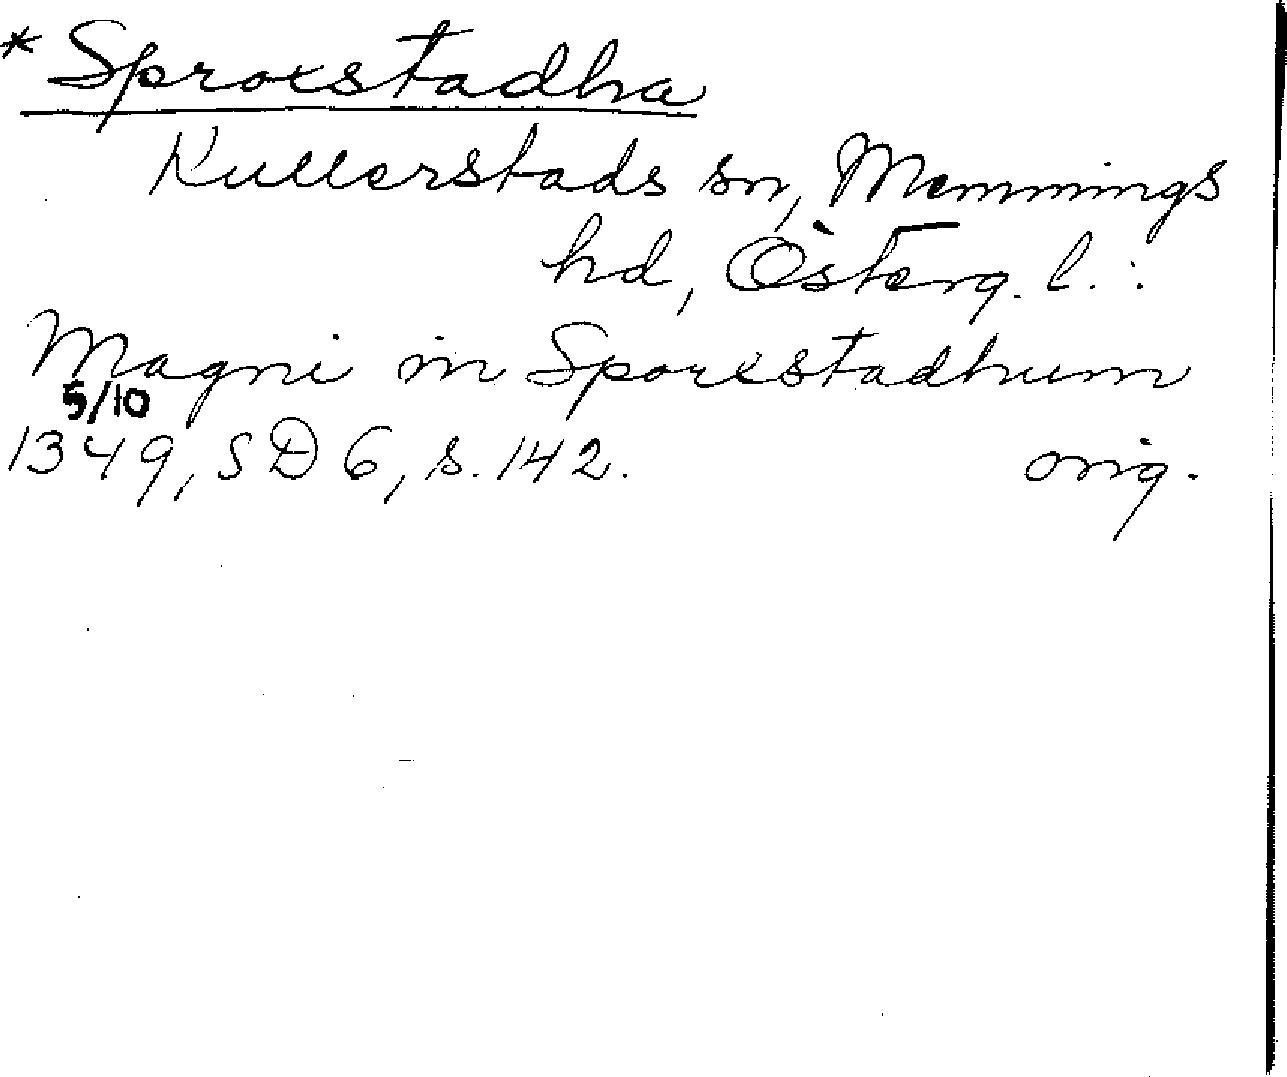 *Sproxstadha
Kullerstads sn, Memmings
hd, Österg. l.:
Magni in Sporxstadhum
5/10
1349, SD 6, s. 142. orig.